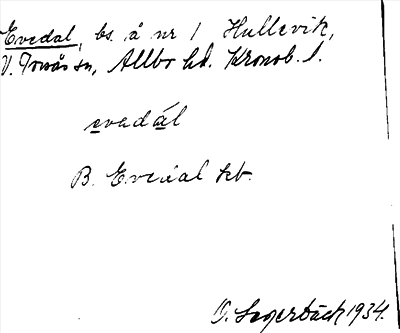 Evedal, bs. å nr 1 Hullevik,
V. Torsås sn, Allbo hd. Kronob. l.
evadál
B. Evedal kb.
O. Segerbäck 1934.